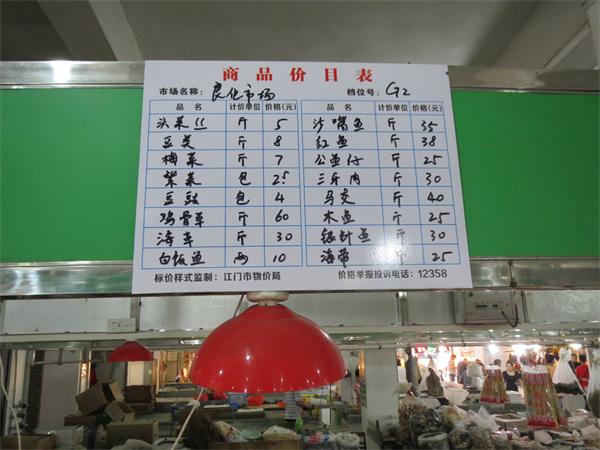 商品价目表
市场名称：良化市场 档位号：G2
品名 计价单位 价格(元) 品名 计价单位 价格(元)
头菜丝 斤 5 沙嘴鱼 斤 35
豆类 斤 8 红鱼 斤 38
梅菜 斤 7 公鱼仔 斤 25
紫菜 包 25 三牙肉 斤 30
豆豉 包 4 马交 斤 40
斤 60 木鱼 斤 25
斤 30 银针鱼 斤 30
白饭鱼 两 10 海带 斤 25
标价样式监制：江门市物价局 价格举报投诉电话：12358